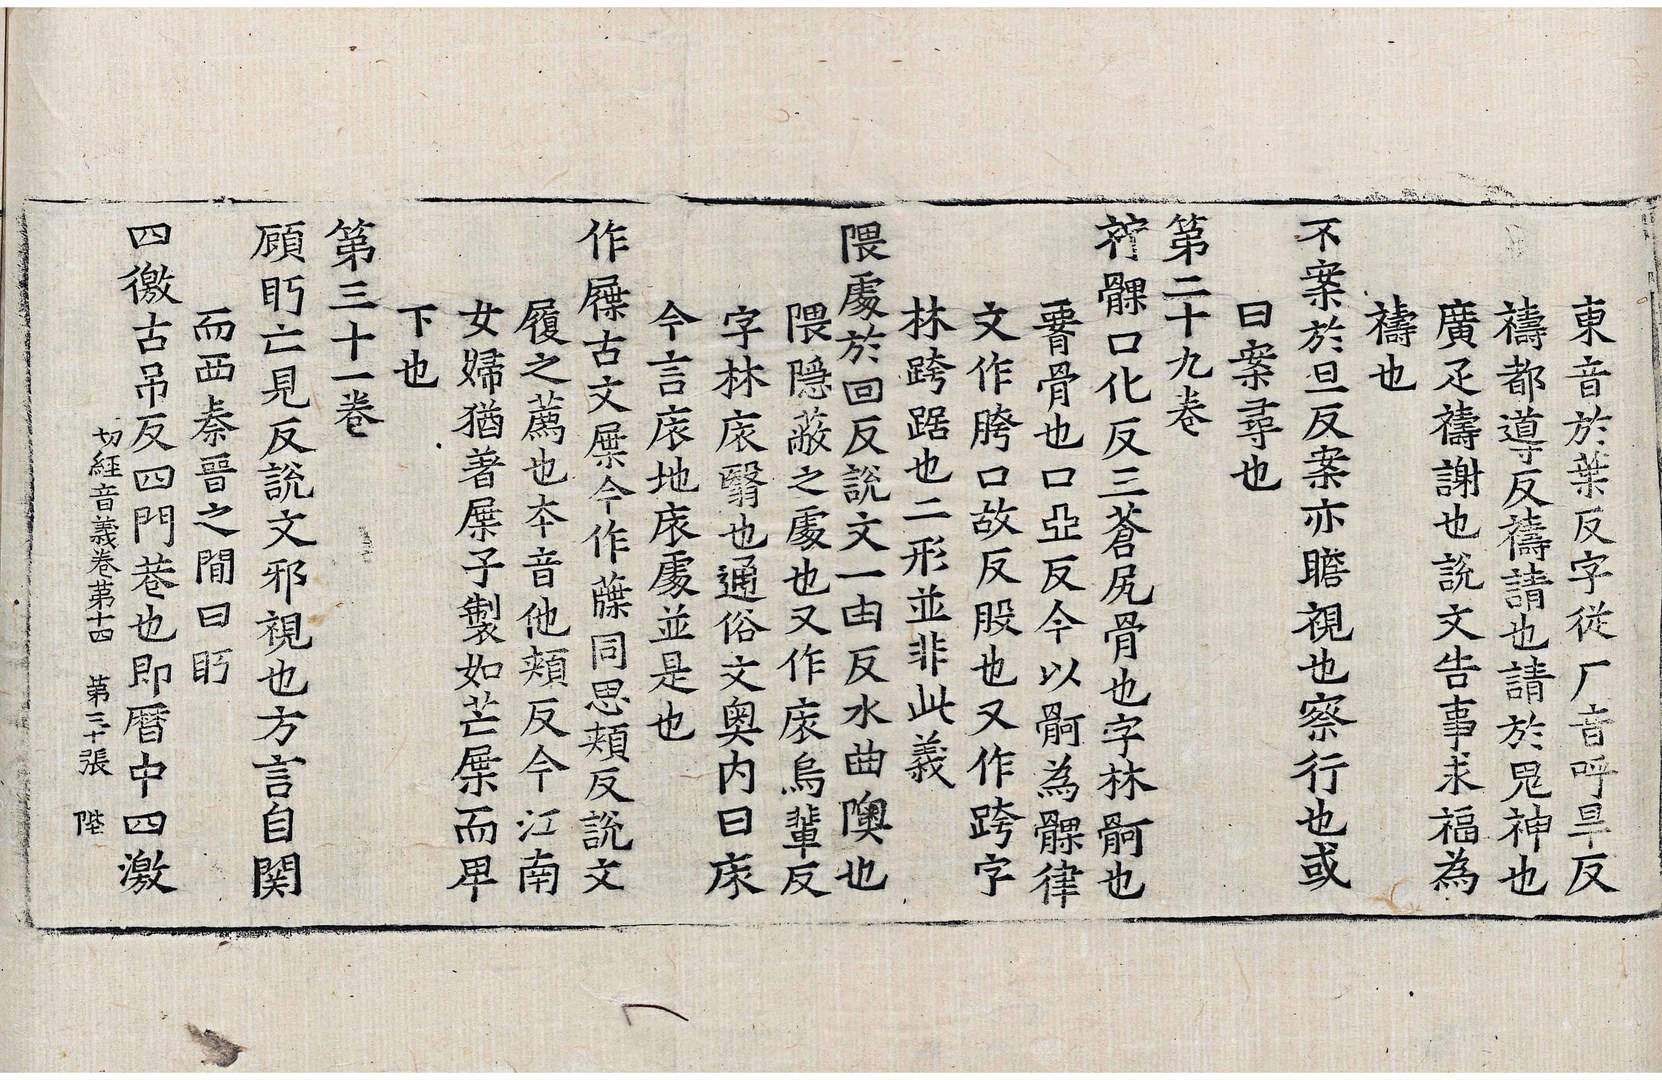 東音於葉反字從厂音呼旱反
禱都導反禱請也請於鬼神也
廣疋禱謝也說文告事求福為
禱也
不案於旦反案亦瞻視也察行也或
曰案尋也
第二十九卷
髁口化反三蒼尻骨也字林骻也
骨也口亞反今以骻為髁律
文作胯口故反股也又作跨字
林跨踞也二形並非此義
隈處於回反說文一由反水曲隩也
隈隱蔽之處也又作㡹烏輩反
字林㡹翳也通俗文奥内曰㡹
今言㡹地㡹處並是也
作屧古文屟今作㒎同思頰反說文
履之薦也夲音他頰反今江南
女婦猶著屟子製如芒屟而卑
下也
第三十一卷
頋眄亡見反說文邪視也方言自関
而西秦晉之間曰眄
四徼古吊反四門巷也即曆中四激
切經音義卷苐十四 苐三十張 陛